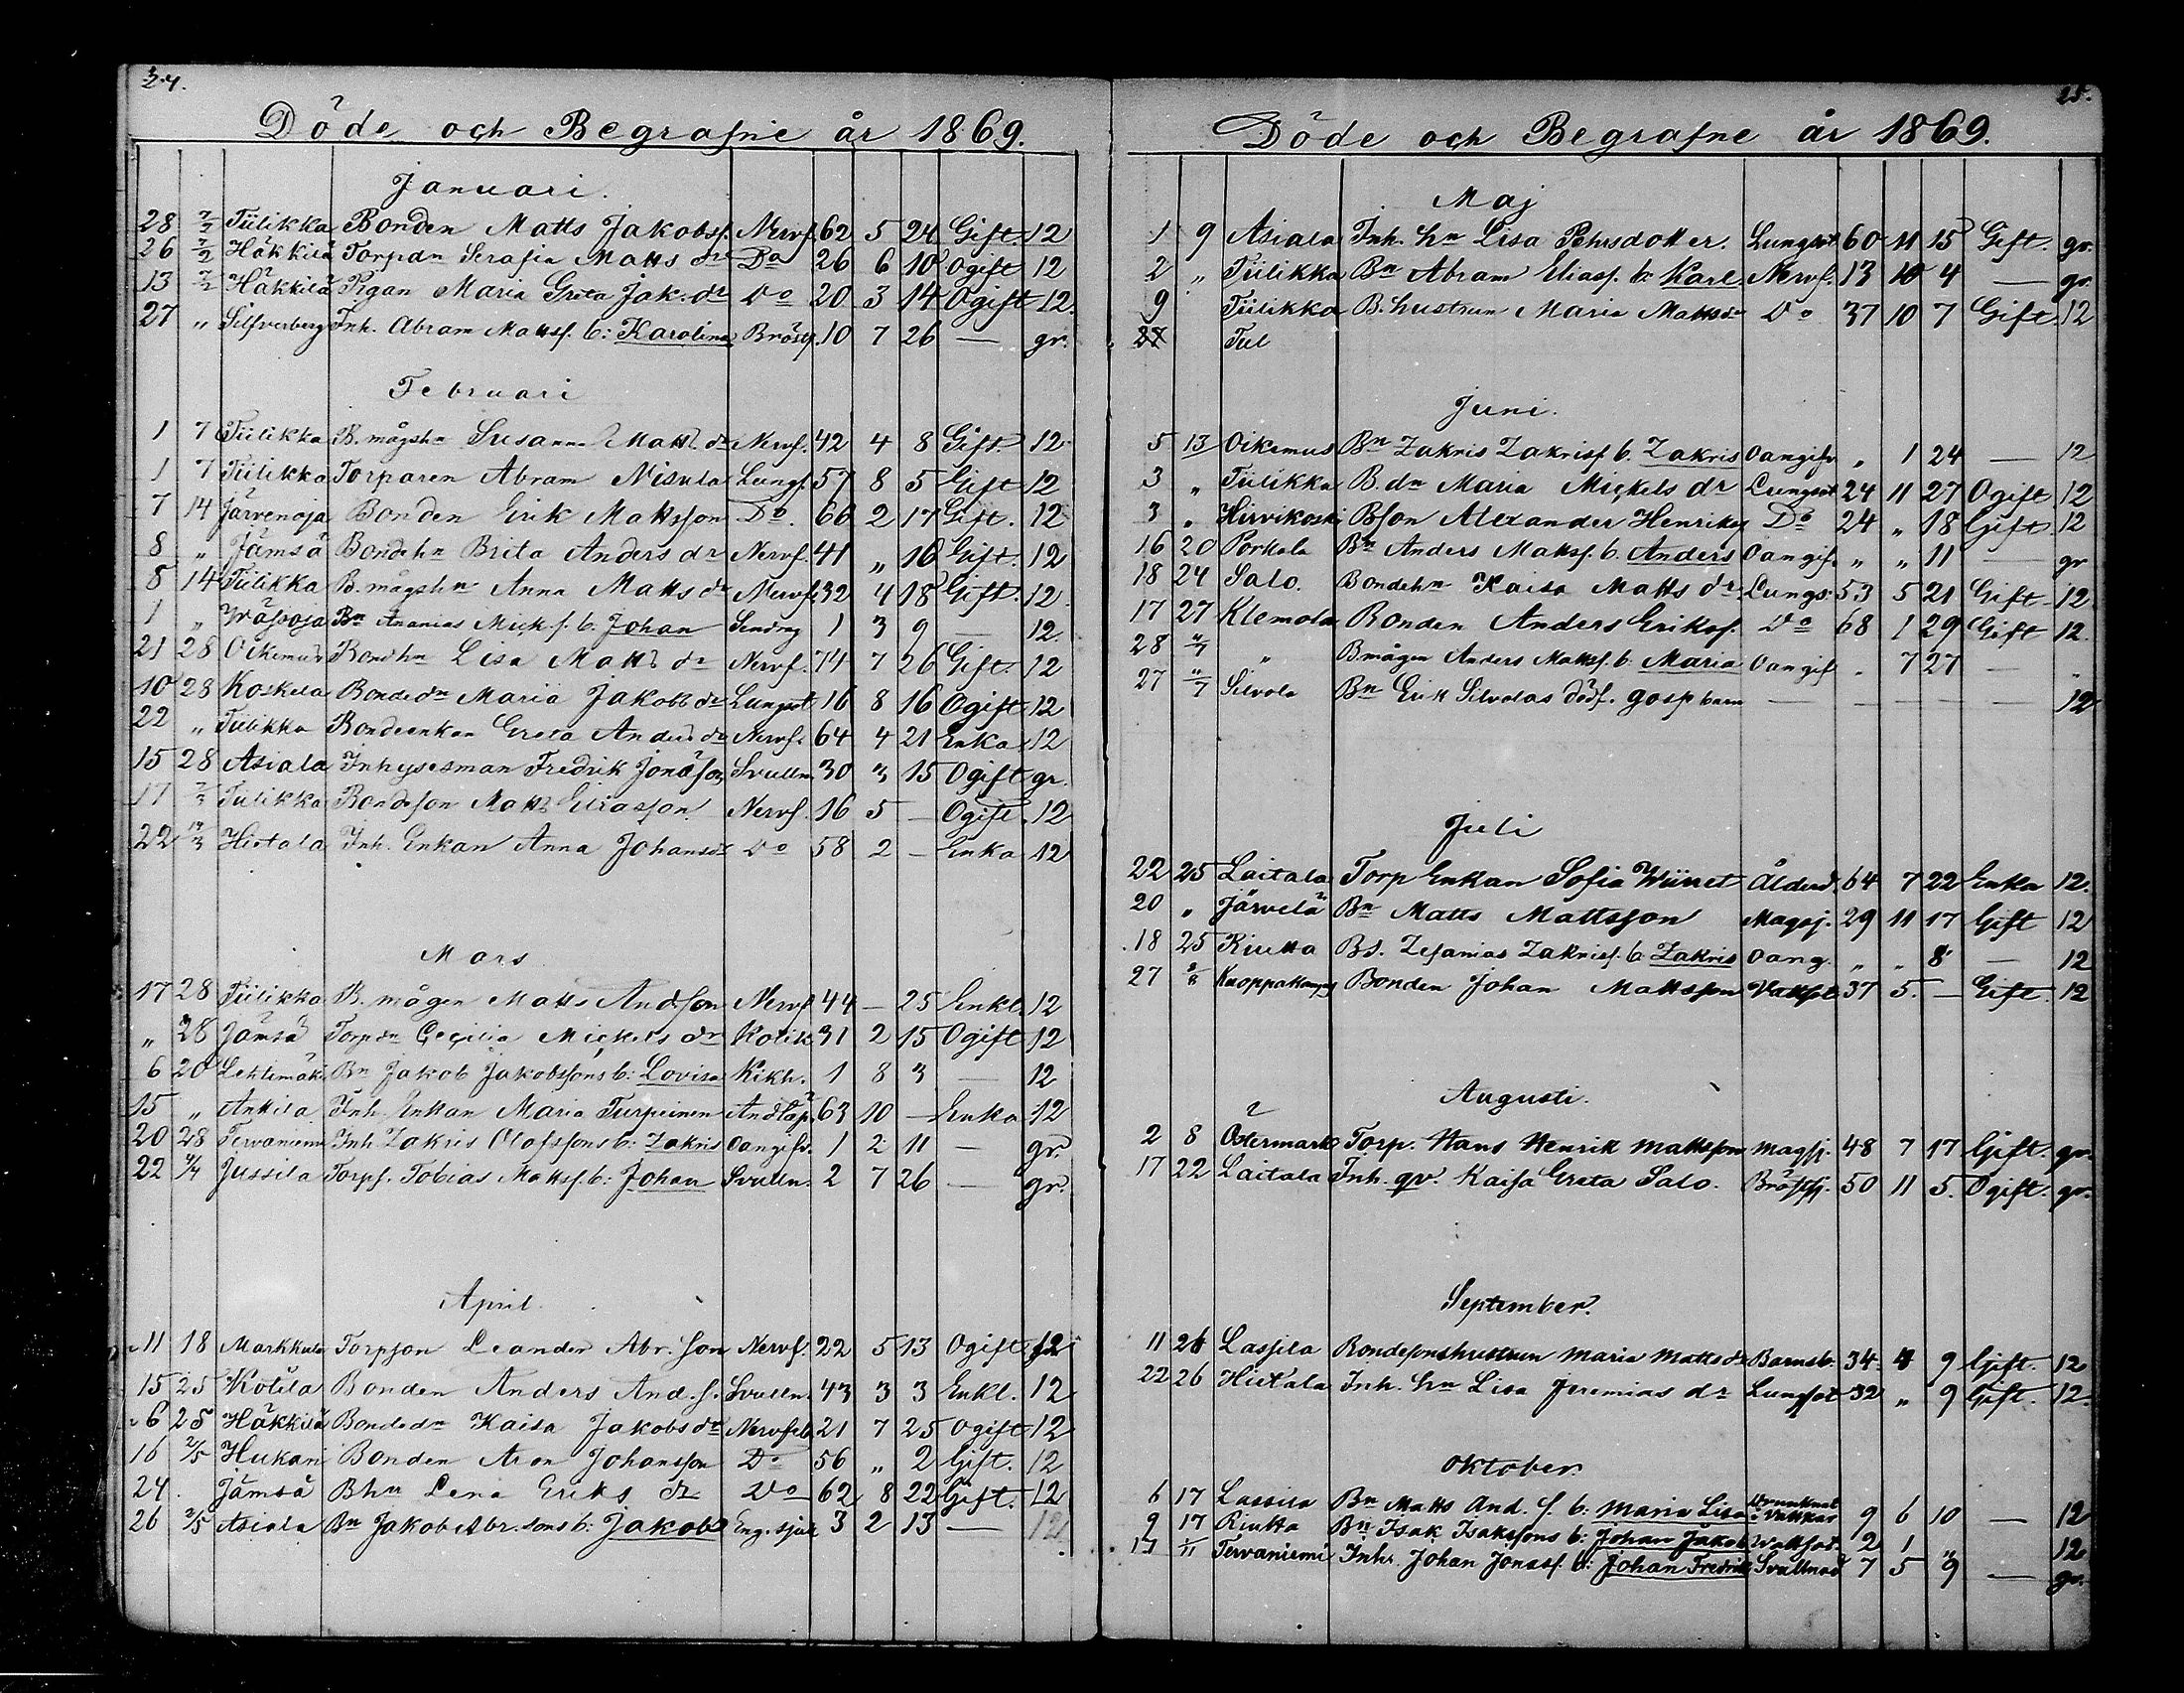 24.
Döde och Begrafne år 1869.
Januari.
28 7/2 Tiilikka Bonden Matts Jakobsf. Nervf. 62 5 24 Gift. 12
26 7/2 Häkkilä Torpdn Serafia Matts dr Do 26 6 10 ogift 12
13 7/2 Häkkilä Pigan Maria Greta Jak. dr Do 20 3 14 Ogift 12.
27 " Silfverberg Inh. Abram Mattsf. b: Karolina Bröstf. 10 7 26 — gr.
Februari
1 7 Tiilikka B. mågshn Susanna Matts dr Nervf. 42 4 8 Gift. 12
1 7 Tiilikka Torparen Abram Nisula Lungf. 57 8 5 Gift 12
7 14 Järvenoja Bonden Erik Mattsson Do. 66 2 17 Gift. 12
8 " Jämsä Bondehn Brita Anders dr Nervf. 41 " 16 Gift. 12
8 14 Tiilikka B. mågshn Anna Matts dr Nervf. 32 4 18 Gift. 12.
1 " Bn Ananias Mick. f. b. Johan Sendrag 1 3 9 — 12
21 28 Oikemus Bondhn Lisa Matts dr Nervf. 74 7 26 Gift. 12
10 28 Koskela Bondedn Maria Jakobs dr Lungsot 16 8 16 Ogift 12
22 " Tiilikka Bondeenkan Greta Anders dr Nervf. 64 4 21 Enka 12
15 28 Asiala Inhysesman Fredrik Jonasson Svulln. 30 " 15 Ogift gr.
17 7/3 Tiilikka Bondeson Matts Eliasson Nervf. 16 5 — Ogift. 12
22 14/3 Hietala Inh. Enkan Anna Johansdr Do 58 2 — Enka 12
Mars
17 28 Tiilikka B. mågen Matts Andsson Nervf. 44 — 25 Enkl. 12
" 28 Jämsä Torpdn Cecilia Mickels dr Kolik 31 2 15 Ogift 12
6 20 Lehtimäki Bn Jakob Jakobssons b: Lovisa Kikh. 1 8 3 — 12
15 " Ankila Inh. Enkan Maria Turpeinen Andtäp. 63 10 — Enka 12
20 28 Tervaniemi Inh. Zakris Olofssons b: Zakris Oangifv. 1 2 11 — gr.
22 4/4 Jussila Torpf. Tobias Mattsf. b: Johan Svulln. 2 7 26 — gr.
April.
11 18 Markkula Torpson Leander Abr. son Nervf. 22 5 13 Ogift 12
15 25 Kotila Bonden Anders And. f. Svulln. 43 3 3 Enkl. 12
6 25 Häkkilä Bondedn Kaisa Jakobs dr Nervfeb. 21 7 25 Ogift 12
16 2/5 Hukari Bonden Aron Johansson Do 56 " 2 Gift. 12
24. Jämsä Bhn Lena Eriks dr Do 62 8 22 Gift. 12
26 2/5 Asiala Bn Jakob Abr. sons b: Jakob Eng. sjuk 3 2 13 — 12
25.
Döde och Begrafne år 1869.
Maj
1 9 Asiala Inh. hn Lisa Pehrsdotter. Lungsot 60 11 15 Gift. gr.
2 " Tiilikka Bn Abram Eliasf. b: Karl Nervf. 13 10 4 — gr.
9 Tiilikka B. hustrun Maria Mattsdr Do 37 10 7 Gift. 12
27 Tiil
Juni.
5 13 Oikemus Bn Zakris Zakrisf. b. Zakris Oangifv " 1 24 — 12
3 " Tiilikka B. dn Maria Mickels dr Lungsot 24 11 27 Ogift 12
3 " Hirvikoski Bson Alexander Henriks Do 24 " 18 Gift 12
16 20 Porkola Bn Anders Mattsf. b. Anders Oangif. " " 11 — gr
18 24 Salo. Bondehn Kaisa Matts dr Lungs. 53 5 21 Gift 12
17 27 Klemola Bonden Anders Eriksf. Do 68 1 29 Gift 12.
28 4/7 " Bmågen Anders Mattsf. b. Maria Oangif " 7 27 — "
27 4/7 Silvola Bn Erik Silvolas dödf. gossbarn — — — — 12
Juli
22 25 Laitala Torp Enkan Sofia Ålderd. 64 7 22 Enka 12.
20 " Järvelä Bn Matts Mattsson Magsj. 29 11 17 Gift 12
18 25 Riutta Bs. Zefanias Zakrisf. b. Zakris Oang. " " 8 — 12
27 8/8 Bonden Johan Mattsson Vattsot 37 5. — Gift. 12
Augusti.
2 8 Östermark Torp. Hans Henrik Mattsson Magsj. 48 7 17 Gift. gr.
17 22 Laitala Inh. qv. Kajsa Greta Salo. Bröstsj. 50 11 5. Ogift. gr.
September.
11 26 Lassila Bondesonshustrun Maria Matts dr Barnsb. 34 4 9 Gift. 12
22 26 Hietala Inh. hn Lisa Jeremias dr Lungsot 32 " 9 Gift. 12.
Oktober.
6 17 Lassila Bn Matts And. f. b: Maria Lisa Drunknat i vattkar 9 6 10 — 12
9 17 Riutta Bn Isak Isakssons b: Johan Jakob Vattsot. 2 1 " 12
17 1/11 Tervaniemi Inh. Johan Jonasf. b: Johan Fredrik Svullnad 7 5 9 — gr.